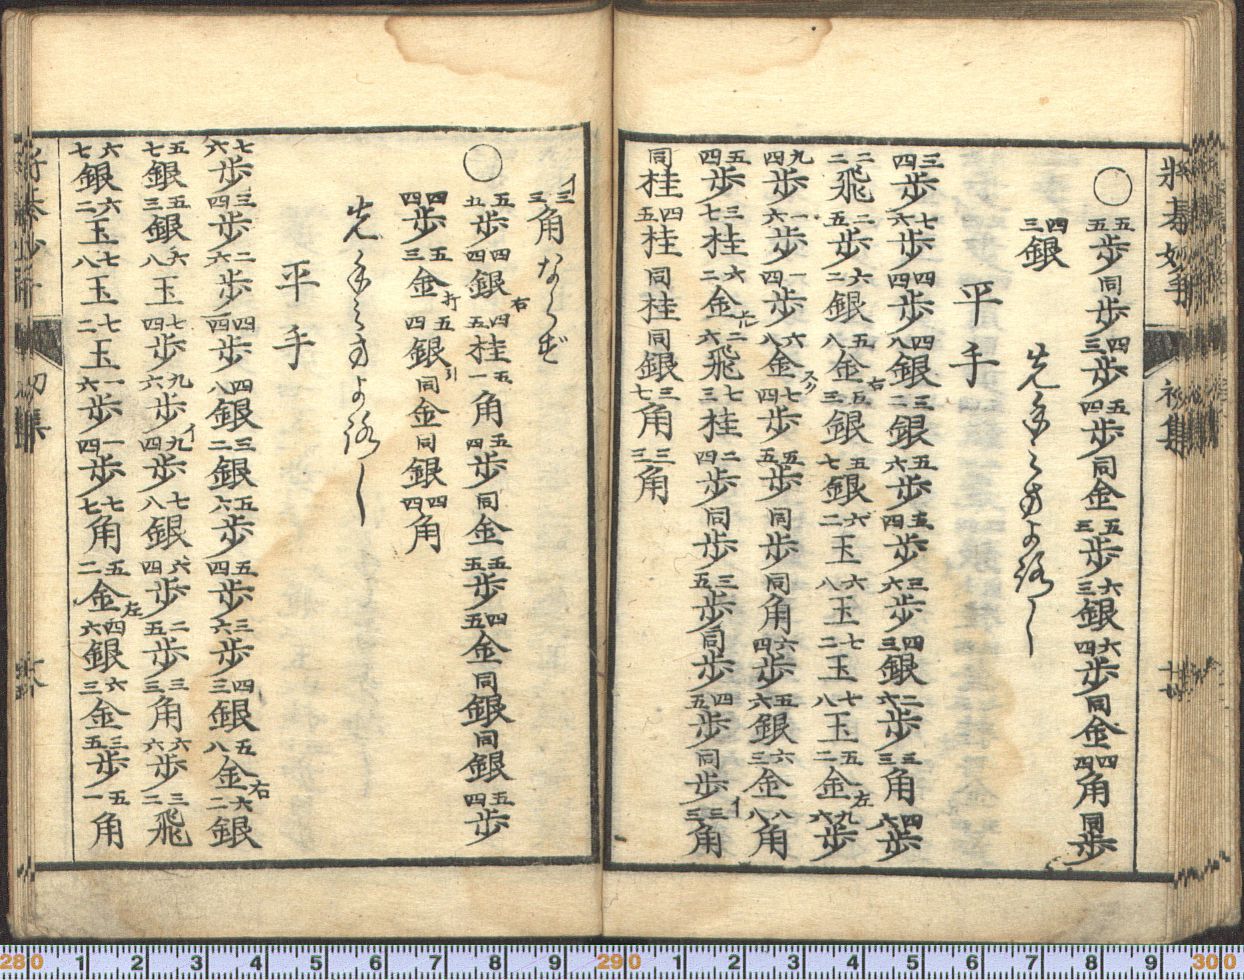 將棊妙手 初集
○五五歩同歩四三歩五四歩同金五三歩六三銀六四歩同金四四角同歩
四三銀 先手之方よろし
平手
三四歩七六歩四四歩四八銀三二銀五六歩五四歩三六歩四三銀二六歩三三角四六歩
二二飛二五歩六二銀五八金右五三銀五七銀六二玉六八玉七二玉七八玉五二金左九六歩
九四歩一六歩一四歩六八金スグ七四歩五五歩同歩同角六四歩五六銀六三金八八角
五四歩三七桂六二金左二六飛七三桂二四歩同歩三五歩同歩四五歩同歩イ三三角
同桂四五桂同桂同銀三七角三三角
イ三三角ならば
○五五歩四四銀右四五桂五一角五四歩同金五五歩四五金同銀同銀五四歩
四四歩五三金打五四銀引同金同銀四四角
先手之方よろし
平手
七六歩三四歩二六歩四四歩四八銀三二銀五六歩五四歩三六歩四三銀五八金右六二銀
五七銀五三銀六八玉七四歩九六歩イ九四歩七八銀六四歩二五歩三三角六六歩三二飛
六七銀六二玉七八玉七二玉一六歩一四歩七七角五二金左四六銀六三金三五歩五一角